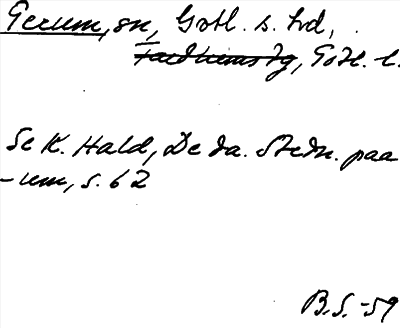 Gerum, sn, Gotl. s. hd,
Fardhems tg, Gotl. l.
Se K. Hald, De da. Stedn. paa
-um, s. 62
B.S. -59